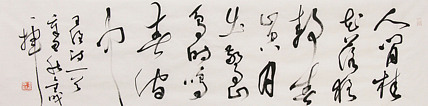 人閒桂
花落夜
靜春
山空月
出驚山
鳥時鳴
春澗
中
王維詩一首